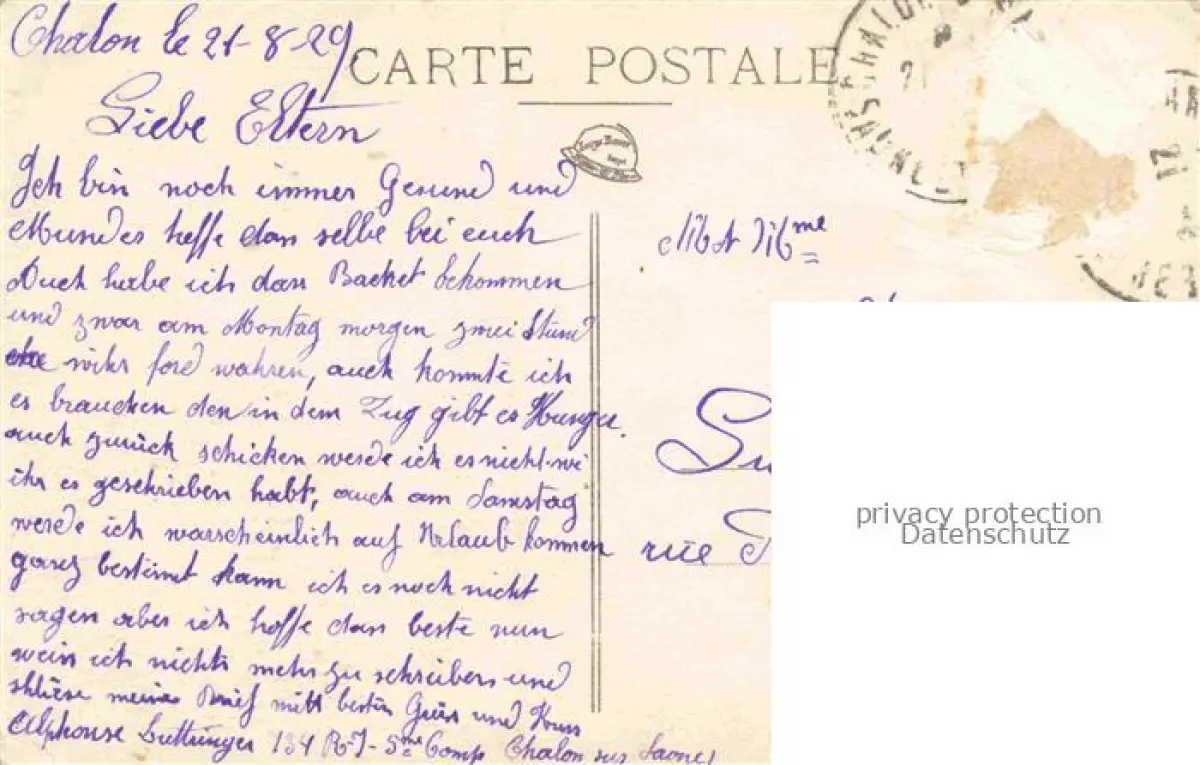 Chalon le 21-8-29.
CARTE POSTALE
Liebe Eltern
Ich bin noch immer Gesund und
Mundes hoffe das selbe bei euch
Auch habe ich das Backet bekommen
und zwar am Montag morgen zwei Stund
wihr ford wahren, auch konnte ich
es braucken den in dem Zug gibt es Hunger.
auch zurück schicken werde ich es nicht wi
ihr es geschrieben habt, auch am Samstag
werde ich warscheinlich auf Urlaub kommen
ganz bestimt kann ich es noch nicht
sagen aber ich hoffe das beste nun
weis ich nichts mehr zu schreibens und
schliese meinen Brief mitt besten Grüss und Kuss
Alphonse Luttringer 134 R-I- 5me Comp Chalon sur Saone
Mr et Mme
rue
privacy protection
Datenschutz